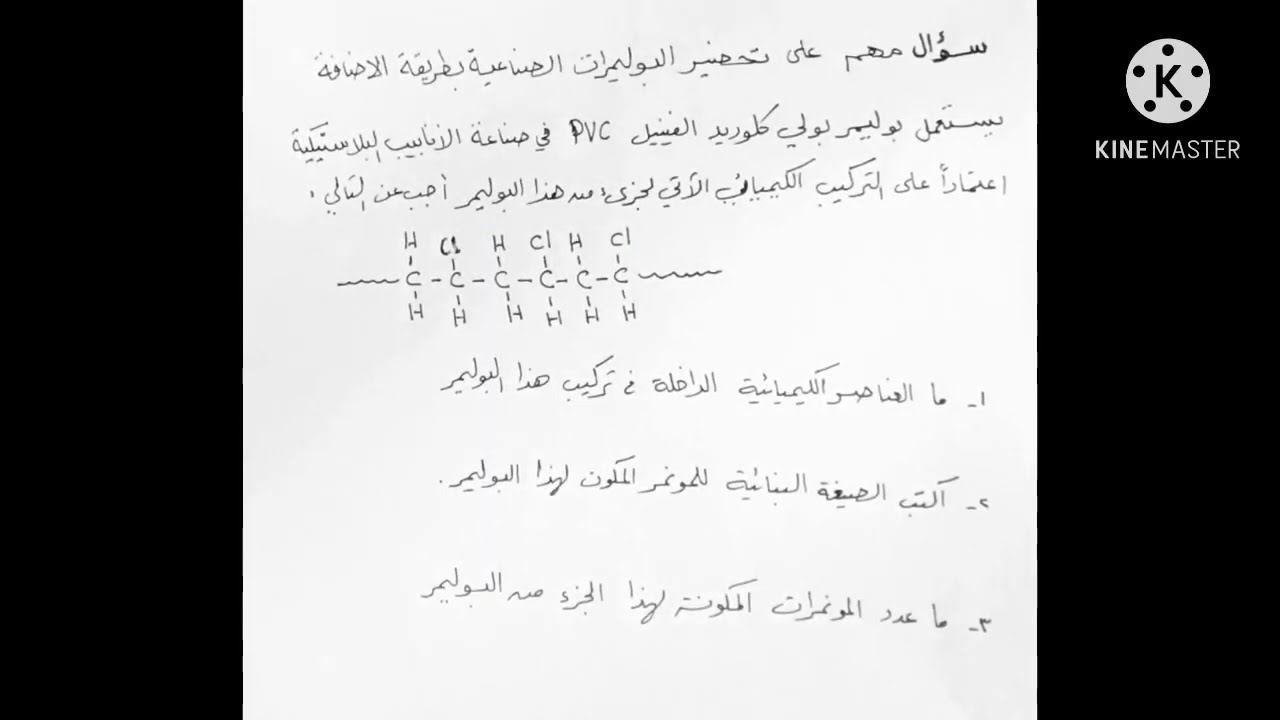 سؤال مهم على تحضير البوليمرات الصناعية بطريقة الاضافة
يستعمل بوليمر بولي كلوريد الفينيل PVC في صناعة الأنابيب البلاستيكية
اعتماداً على التركيب الكيميائي الآتي لجزيء من هذا البوليمر أجب عن التالي :
H Cl H Cl H Cl
C - C - C - C - C - C
H H H H H H
١- ما العناصر الكيميائية الداخلة في تركيب هذا البوليمر
٢- أكتب الصيغة البنائية للمونمر المكون لهذا البوليمر .
٣- ما عدد المونمرات المكونة لهذا الجزء من البوليمر
K
KINEMASTER